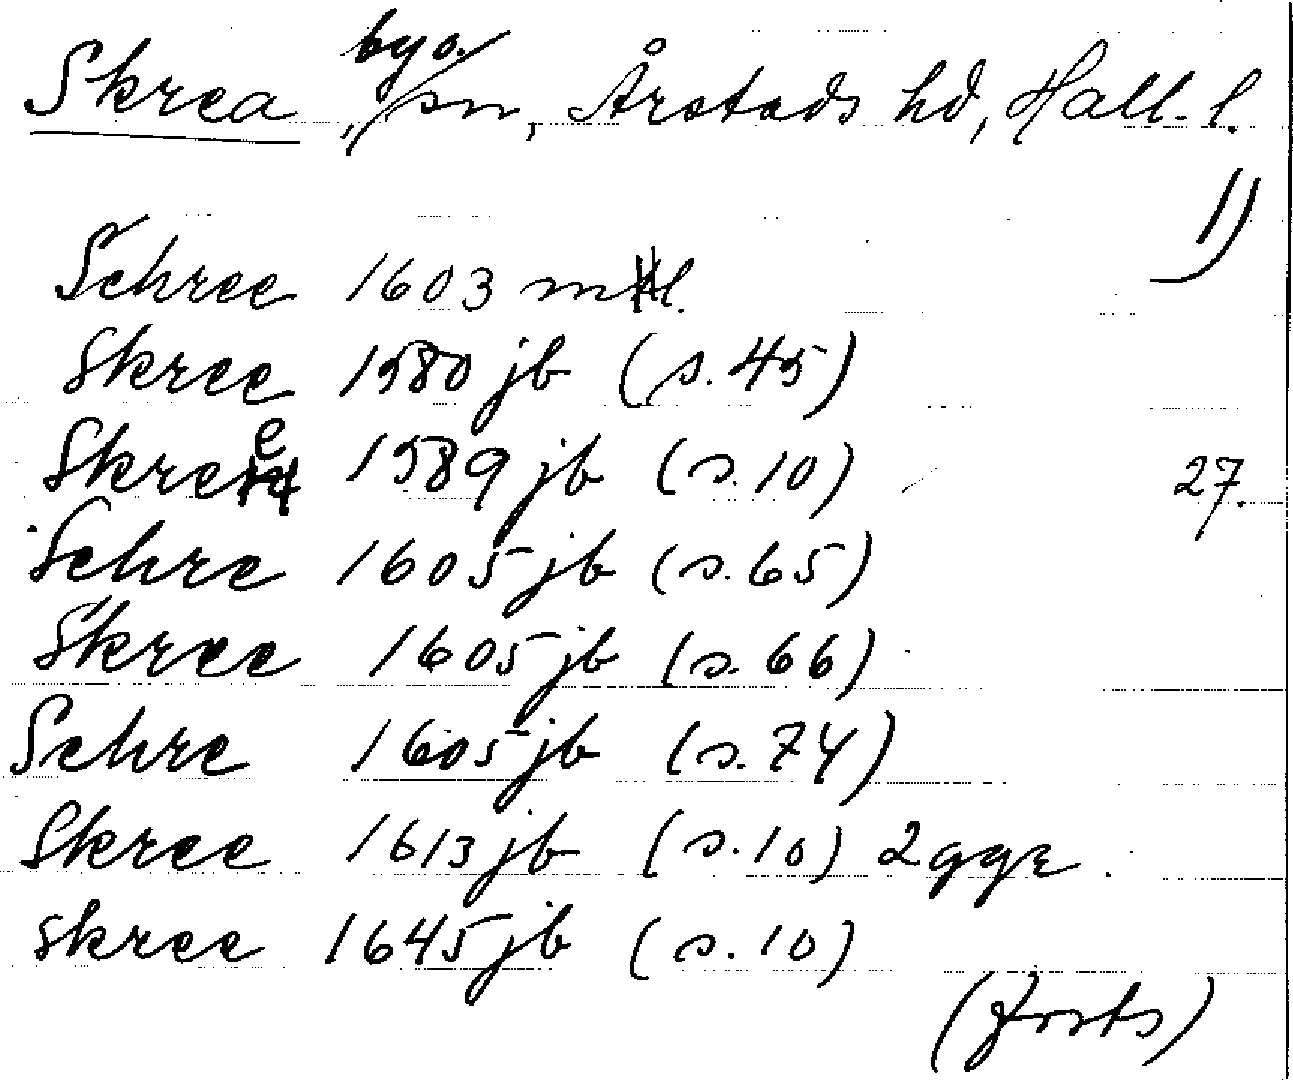 Skrea, by o. sn, Årstads hd, Hall. l.
1)
Schree 1603 mtl.
Skree 1580 jb (s. 45)
Skree 1589 jb (s. 10) 27.
Schre 1605 jb (s. 65)
Skree 1605 jb (s. 66)
Schre 1605 jb (s. 74)
Skree 1613 jb (s. 10) 2 ggr.
Skree 1645 jb (s. 10)
(forts)